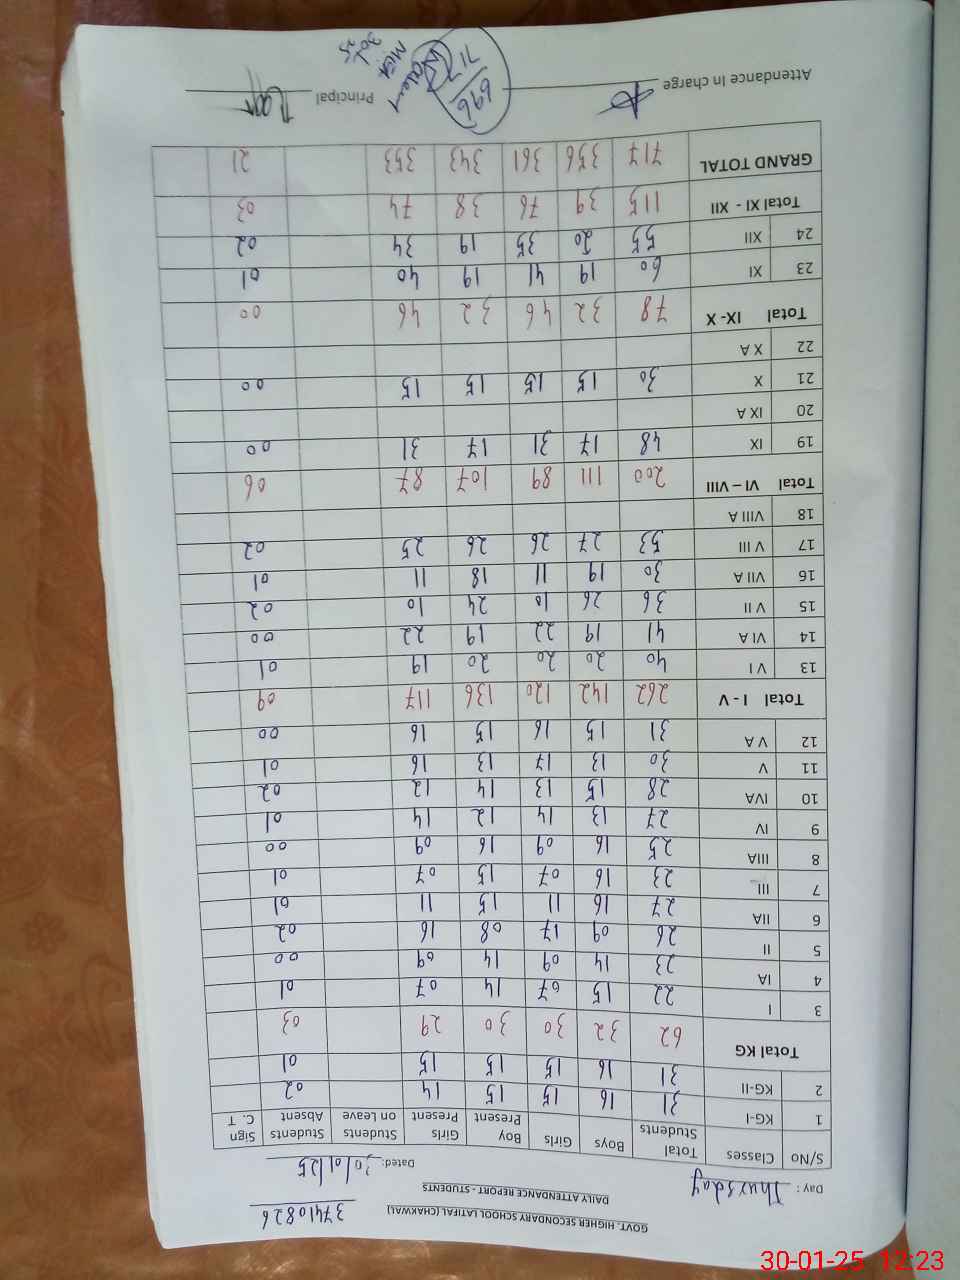 GOVT. HIGHER SECONDARY SCHOOL LATIFAL (CHAKWAL)
37410826
DAILY ATTENDANCE REPORT - STUDENTS
Day : Thursday Dated: 30/01/25
S/No Classes Total Students Boys Girls Boy Present Girls Present Students on Leave Students Absent Sign C. T
1 KG-I 31 16 15 15 14 02
2 KG-II 31 16 15 15 15 01
Total KG 62 32 30 30 29 03
3 I 22 15 07 14 07 01
4 IA 23 14 09 14 09 00
5 II 26 09 17 08 16 02
6 IIA 27 16 11 15 11 01
7 III 23 16 07 15 07 01
8 IIIA 25 16 09 16 09 00
9 IV 27 13 14 12 14 01
10 IVA 28 15 13 14 12 02
11 V 30 13 17 13 16 01
12 V A 31 15 16 15 16 00
Total I - V 262 142 120 136 117 09
13 V I 40 20 20 20 19 01
14 VI A 41 19 22 19 22 00
15 V II 36 26 10 24 10 02
16 VII A 30 19 11 18 11 01
17 V III 53 27 26 26 25 02
18 VIII A
Total VI – VIII 200 111 89 107 87 06
19 IX 48 17 31 17 31 00
20 IX A
21 X 30 15 15 15 15 00
22 X A
Total IX- X 78 32 46 32 46 00
23 XI 60 19 41 19 40 01
24 XII 55 20 35 19 34 02
Total XI - XII 115 39 76 38 74 03
GRAND TOTAL 717 356 361 343 353 21
Attendance In charge Principal
696
717
30-01-25 12:23